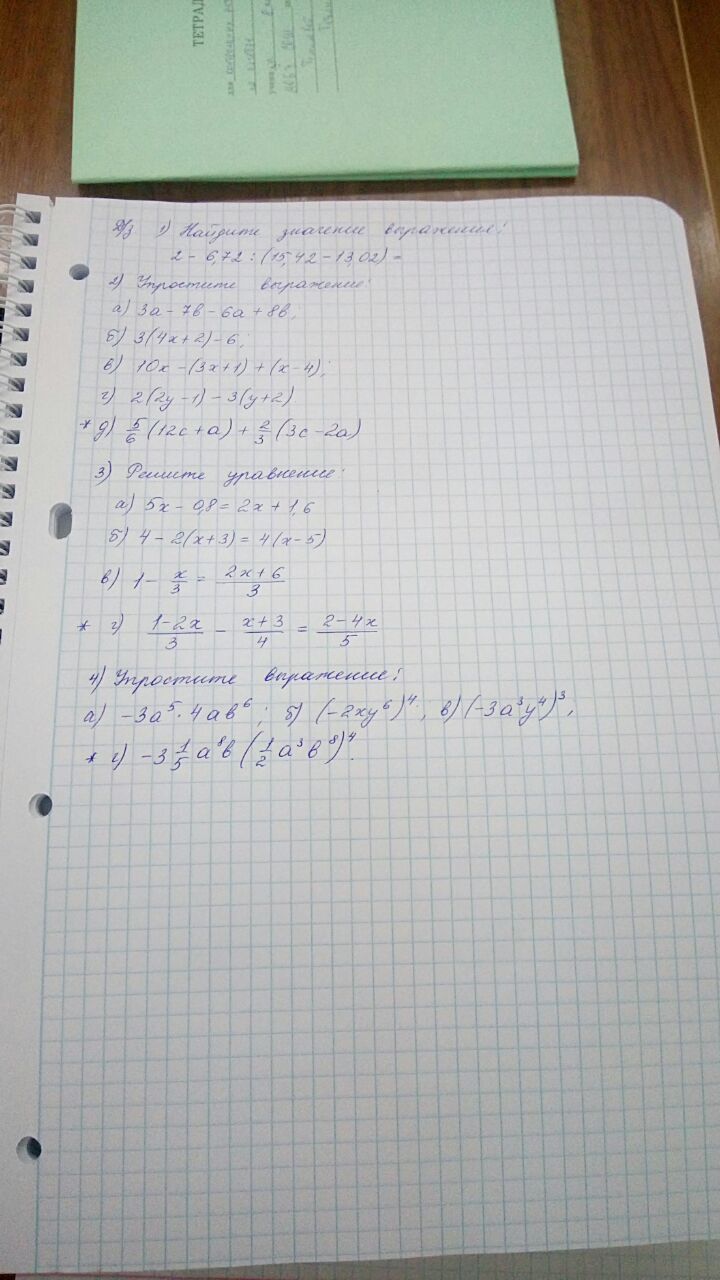 ТЕТРАД
Д/з 1) Найдите значение выражения:
2 - 6,72 : (15,42 - 13,02) =
2) Упростите выражение:
а) 3а - 7в - 6а + 8в;
б) 3(4х + 2) - 6;
в) 10х - (3х + 1) + (х - 4);
г) 2(2у - 1) - 3(у + 2)
* д) 5/6 (12с + а) + 2/3 (3с - 2а)
3) Решите уравнение:
а) 5х - 0,8 = 2х + 1,6
б) 4 - 2(х + 3) = 4(х - 5)
в) 1 - х/3 = (2х + 6)/3
* г) (1 - 2х)/3 - (х + 3)/4 = (2 - 4х)/5
4) Упростите выражение:
а) -3а⁵ · 4ав⁶; б) (-2ху⁶)⁴, в) (-3а³у⁴)³,
* г) -3 1/5 а⁸в (1/2 а³в⁸)⁴.